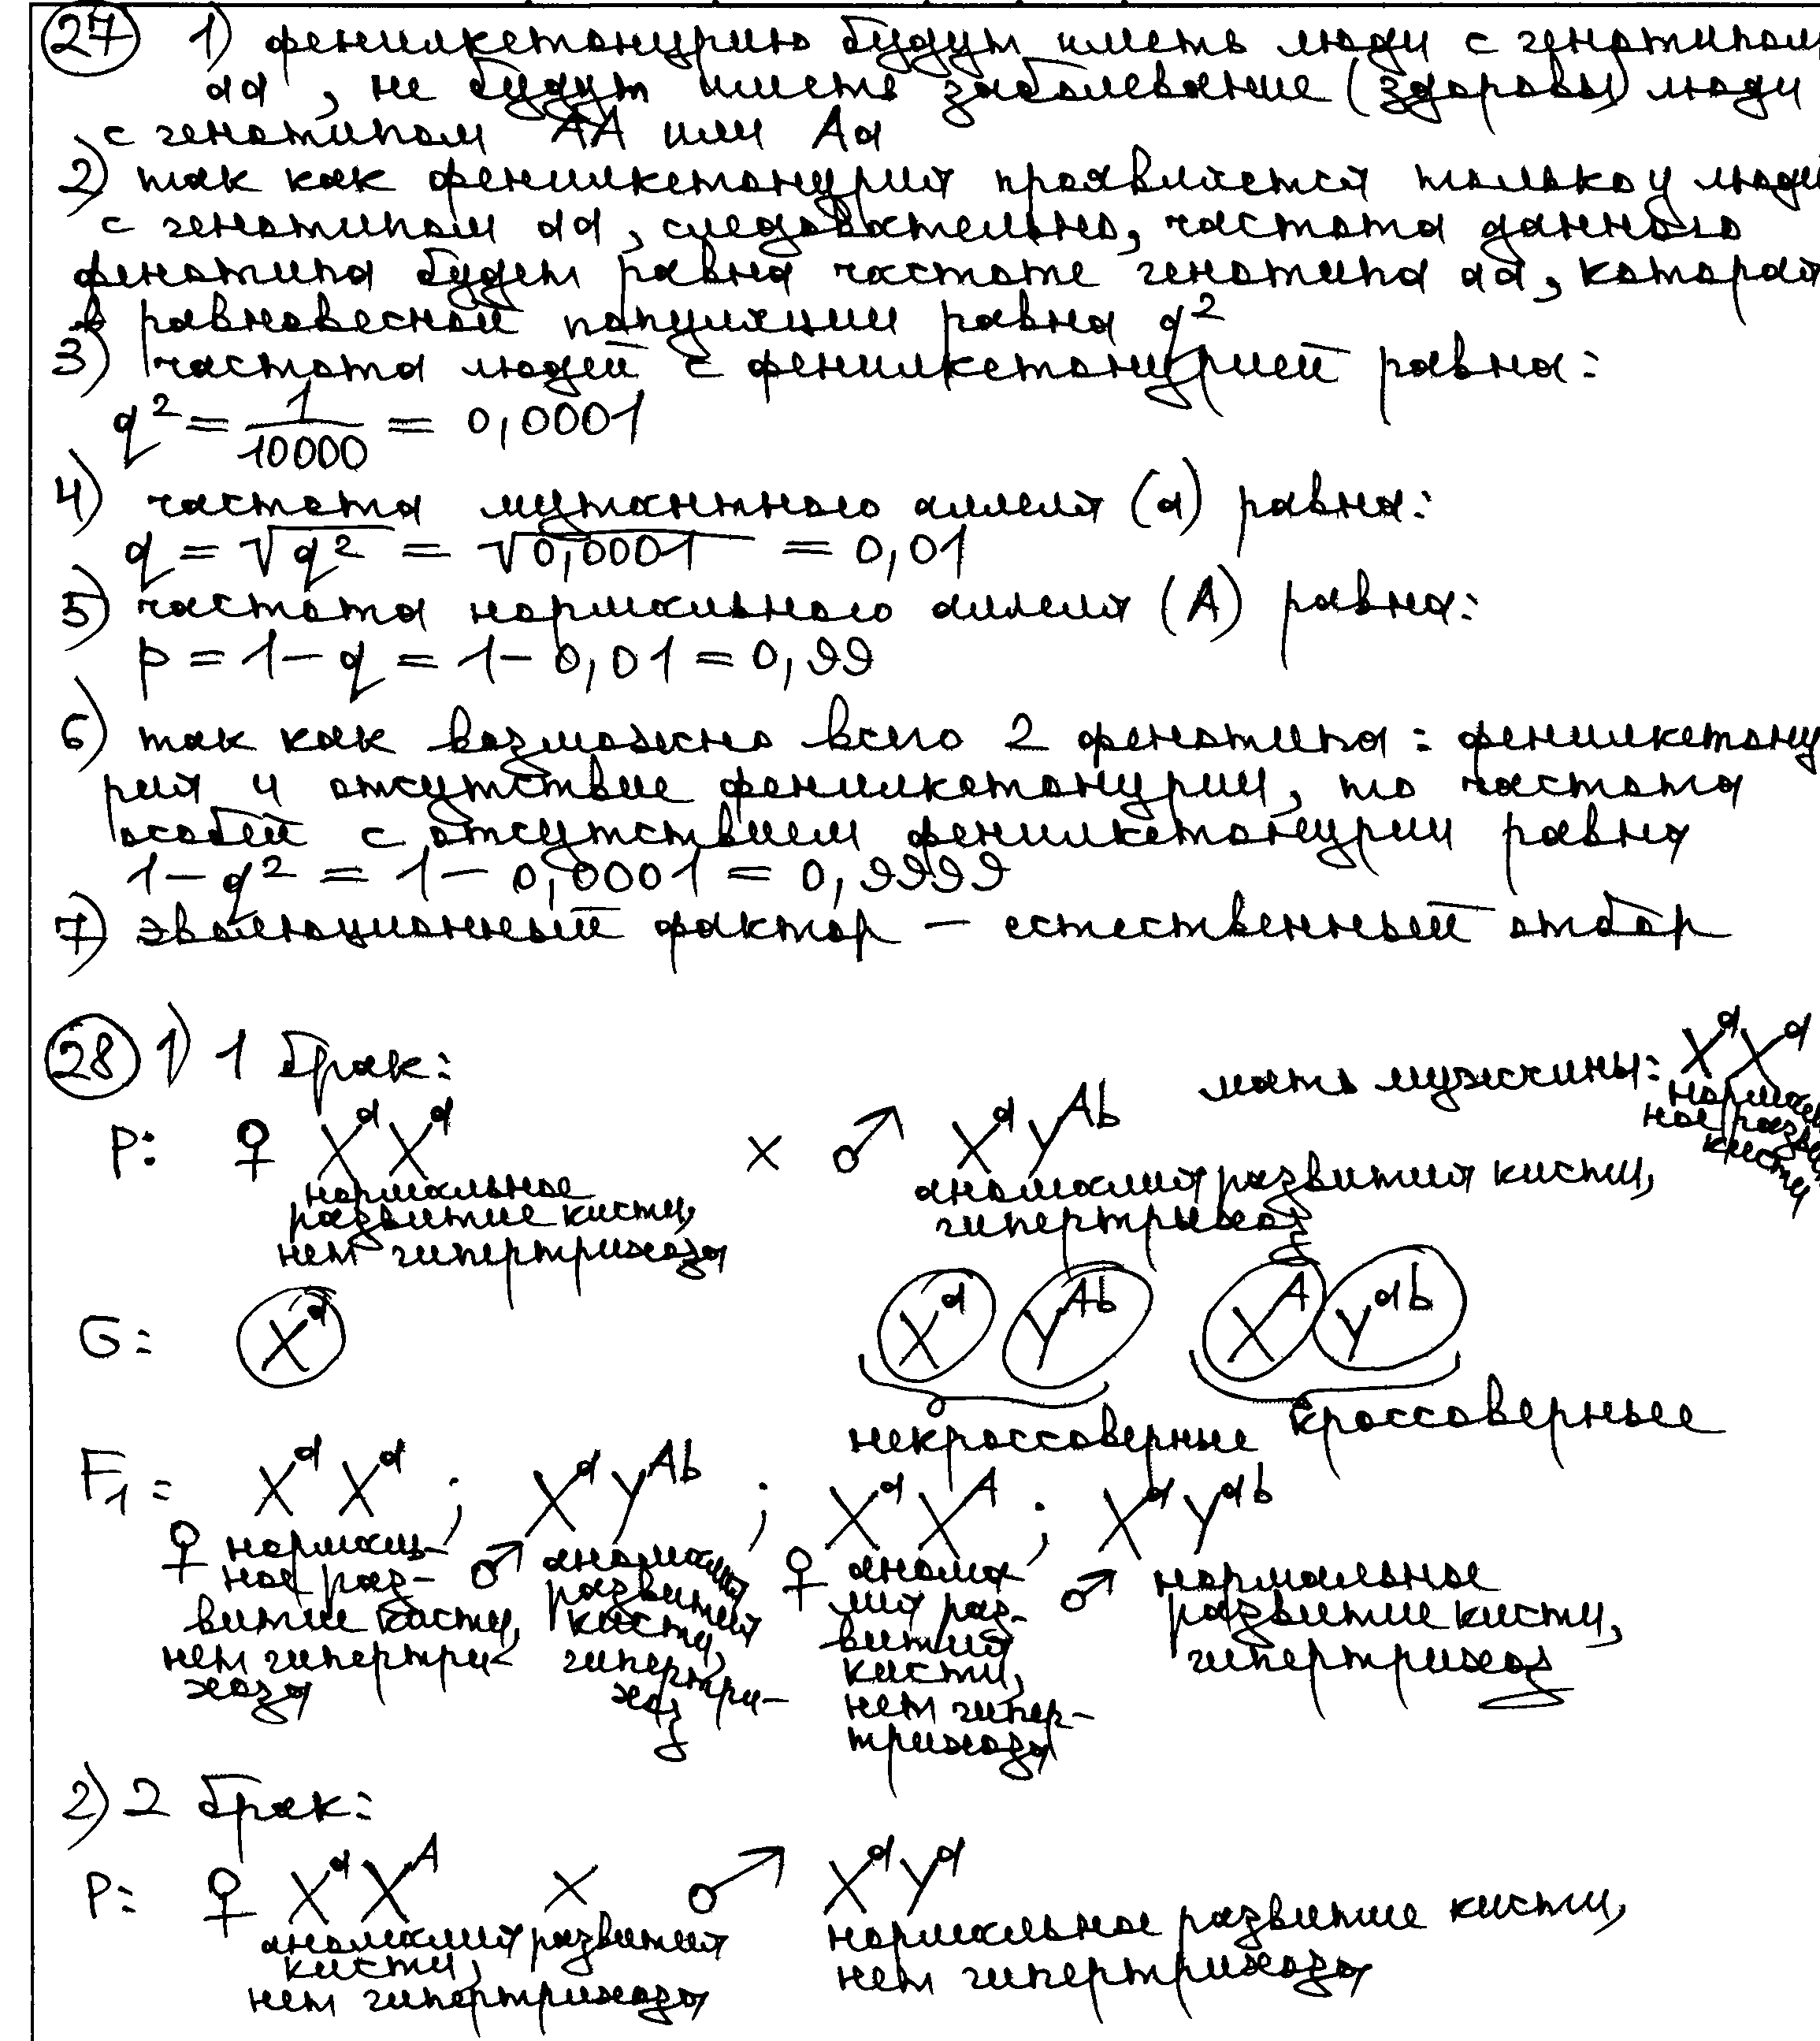 27 1) фенилкетонурию будут иметь люди с генотипом
aa, не будут иметь заболевание (здоровы) люди
с генотипом AA или Aa
2) так как фенилкетонурия проявляется только у люде
с генотипом aa, следовательно, частота данного
фенотипа будет равна частоте генотипа aa, которая
в равновесной популяции равна q²
3) частота людей с фенилкетонурией равна:
q² = 1/10000 = 0,0001
4) частота мутантного аллеля (a) равна:
q = √q² = √0,0001 = 0,01
5) частота нормального аллеля (A) равна:
p = 1 – q = 1 – 0,01 = 0,99
6) так как возможно всего 2 фенотипа: фенилкетону
рия и отсутствие фенилкетонурии, то частота
особей с отсутствием фенилкетонурии равна
1 – q² = 1 – 0,0001 = 0,9999
7) эволюционный фактор – естественный отбор
28 1) 1 брак:
мать мужчины: XᵃXᵃ
нормаль
ное разви
кисти
P: ♀ XᵃXᵃ × ♂ XᵃYᴬᵇ
нормальное
развитие кисти,
нет гипертрихоза
аномалия развития кисти,
гипертрихоз
G: Xᵃ Xᵃ Yᴬᵇ Xᴬ Yᵃᵇ
некроссоверные кроссоверные
F₁: XᵃXᵃ ; XᵃYᴬᵇ ; XᵃXᴬ ; XᵃYᵃᵇ
♀ нормаль-
ное раз-
витие кисти,
нет гипертри-
хоза
♂ аномалия
развития
кисти,
гипертри-
хоз
♀ анома
лия раз-
вития
кисти,
нет гипер-
трихоза
♂ нормальное
развитие кисти,
гипертрихоз
2) 2 брак:
P: ♀ XᵃXᴬ × ♂ XᵃYᵃ
аномалия развития
кисти,
нет гипертрихоза
нормальное развитие кисти,
нет гипертрихоза